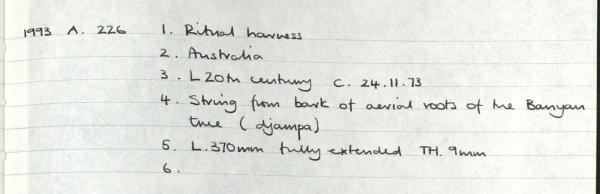 1993 A. 226 1. Ritual harness
2. Australia
3. L 20th century C. 24.11.73
4. String from bark of aerial roots of the Banyan
tree (djampa)
5. L. 370mm fully extended TH. 9mm
6.